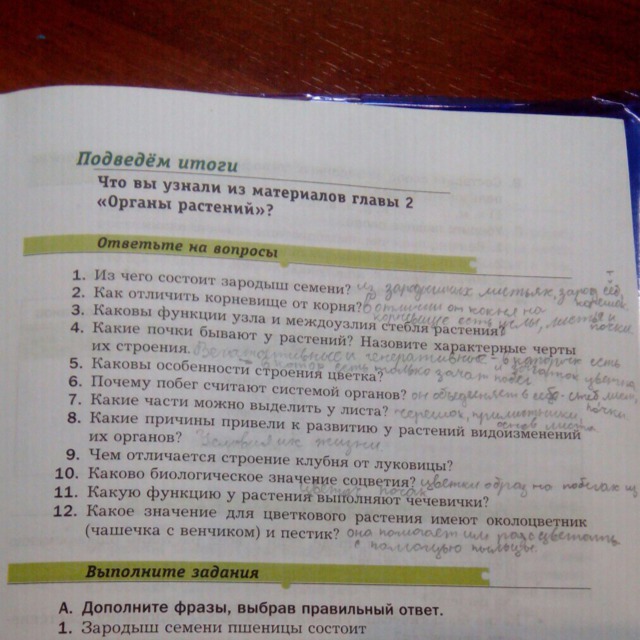 Подведём итоги
Что вы узнали из материалов главы 2
«Органы растений»?
Ответьте на вопросы
1. Из чего состоит зародыш семени? из зародишних листьях, зарод
2. Как отличить корневище от корня? В отличии от корня на
корневище есть узлы, листья и почки
3. Каковы функции узла и междоузлия стебля растения?
4. Какие почки бывают у растений? Назовите характерные черты
их строения. Вегетативные и генеративные - есть
и зачаток цветка,
есть только зачат побег
5. Каковы особенности строения цветка?
6. Почему побег считают системой органов? он объединяет в себе
почки
7. Какие части можно выделить у листа? черешок, прилистники,
основ листа
8. Какие причины привели к развитию у растений видоизменений
их органов? Условия их жизни
9. Чем отличается строение клубня от луковицы?
10. Каково биологическое значение соцветия? цветки образ на побегах из
цветоч почек
11. Какую функцию у растения выполняют чечевички?
12. Какое значение для цветкового растения имеют околоцветник
(чашечка с венчиком) и пестик? она помогает им
с помощью пыльцы
Выполните задания
А. Дополните фразы, выбрав правильный ответ.
1. Зародыш семени пшеницы состоит